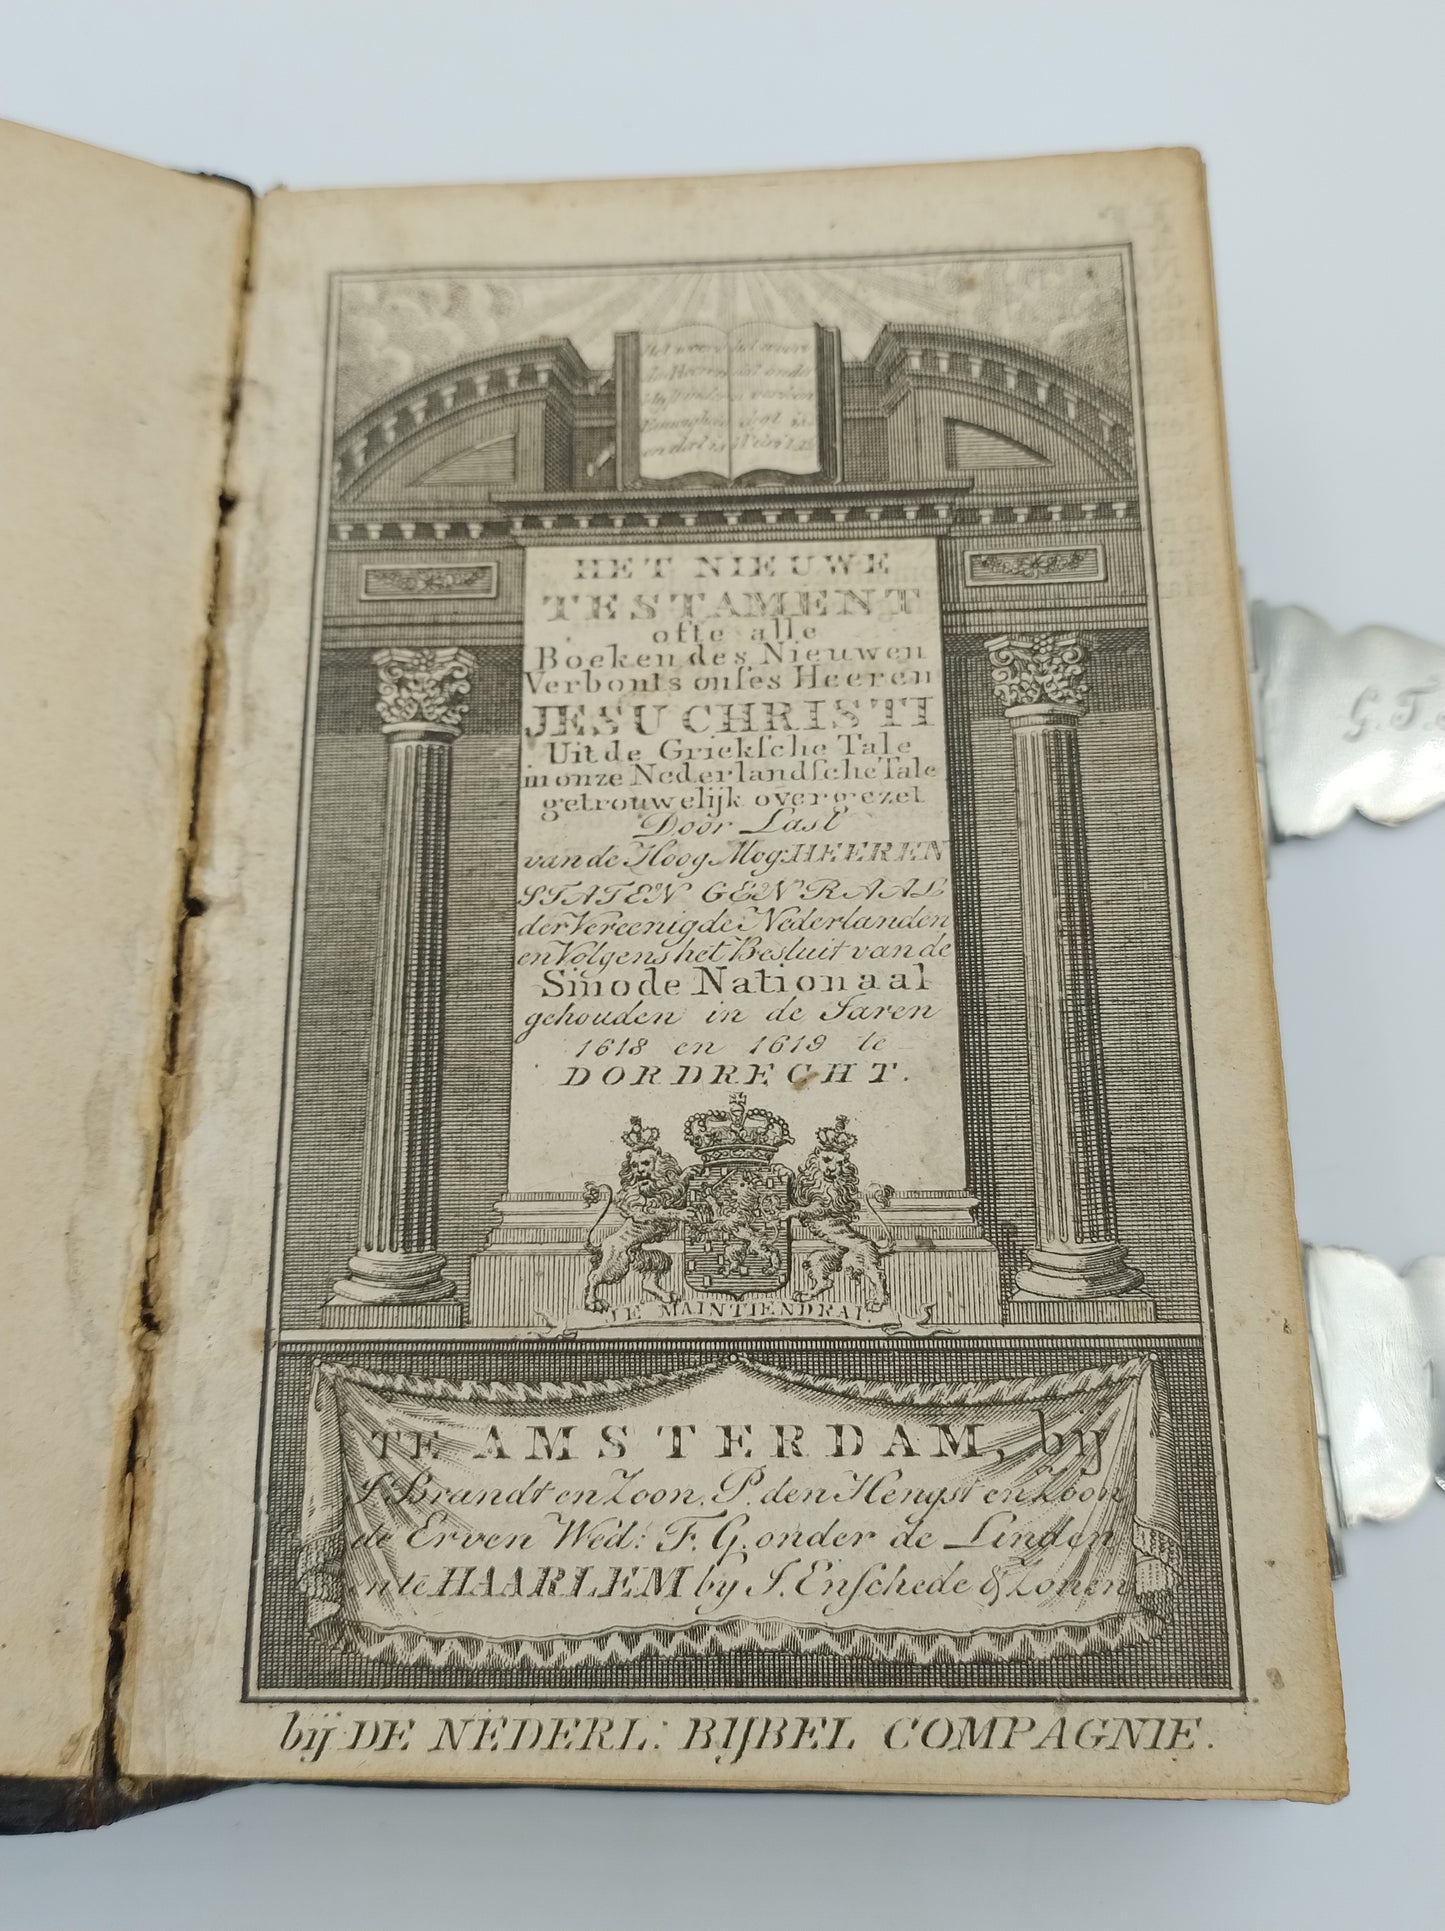 Het woord
HET NIEUWE
TESTAMENT
ofte alle
Boeken des Nieuwen
Verbonts onſes Heeren
JESU CHRISTI
Uit de Griekſche Tale
in onze Nederlandſche Tale
getrouwelijk overgezet
Door Last
van de Hoog Mog: HEEREN
STATEN GEN'RAAL
der Vereenigde Nederlanden
en Volgens het Besluit van de
Sinode Nationaal
gehouden in de Jaren
1618 en 1619 te
DORDRECHT.
JE MAINTIENDRAI.
TE AMSTERDAM, bij
J. Brandt en Zoon. P. den Hengst en Zoon
de Erven Wed: F. G. onder de Linden
en te HAARLEM by J. Enſchede & Zonen
bij DE NEDERL: BIJBEL COMPAGNIE.
G.T.